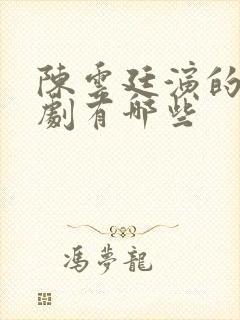 陳雲廷演的
劇有哪些
馮夢龍